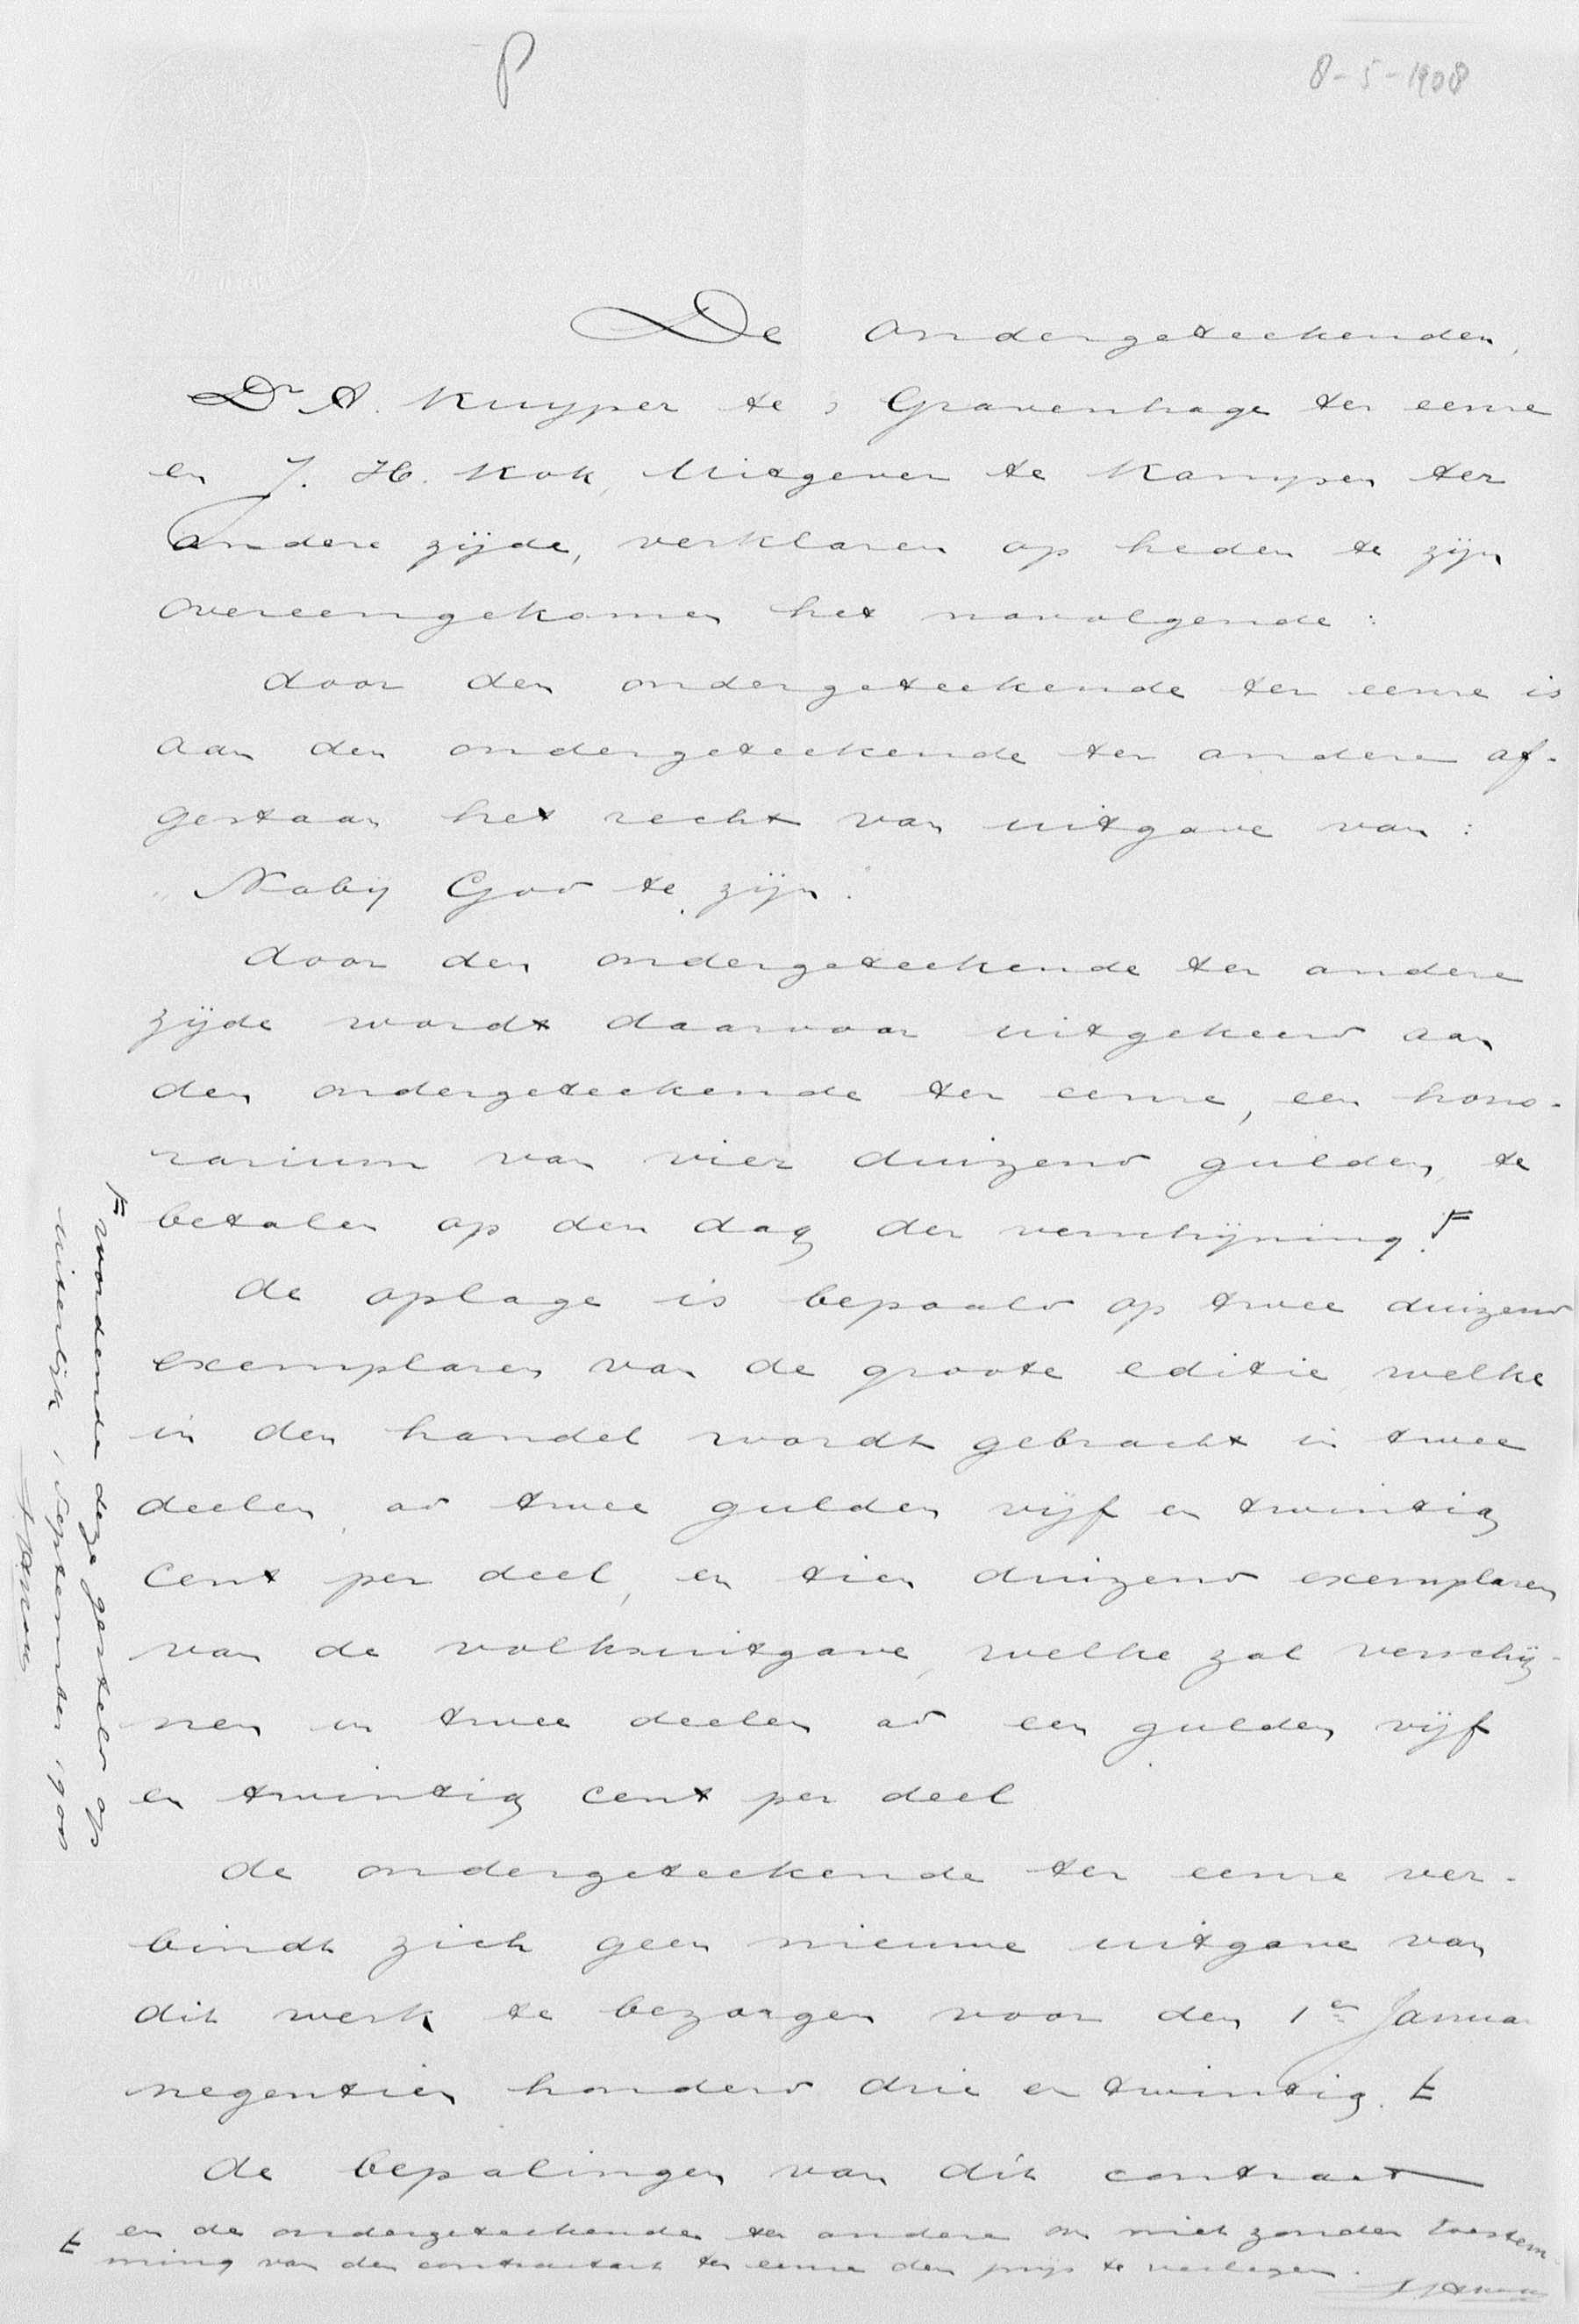 P
8-5-1908
De ondergeteekenden,
Dr A. Kuyper te 's Gravenhage ter eenre
en J. H. Kok, Uitgever te Kampen ter
andere zijde, verklaren op heden te zijn
overeengekomen het navolgende:
door den ondergeteekende ter eenre is
aan den ondergeteekende ter andere af-
gestaan het recht van uitgave van:
"Nabij God te zijn."
door den ondergeteekende ter andere
zijde wordt daarvoor uitgekeerd aan
den ondergeteekende ter eenre, een hono-
rarium van vier duizend gulden, te
betalen op den dag der verschijning. F
de oplage is bepaald op twee duizend
exemplaren van de groote editie, welke
in den handel wordt gebracht in twee
deelen, ad twee gulden vijf en twintig
Cent per deel, en tien duizend exemplaren
van de volksuitgave, welke zal verschij-
nen in twee deelen ad een gulden vijf
en twintig cent per deel
de ondergeteekende ter eenre ver-
bindt zich geen nieuwe uitgave van
dit werk te bezorgen voor den 1en Janua
negentien honderd drie en twintig. E
de bepalingen van dit contract
E en de ondergeteekende ter andere om niet zonder toestem-
ming van den contractant ter eenre den prijs te verlagen.
F wordende deze gesteld op
uiterlijk 1 September 1908